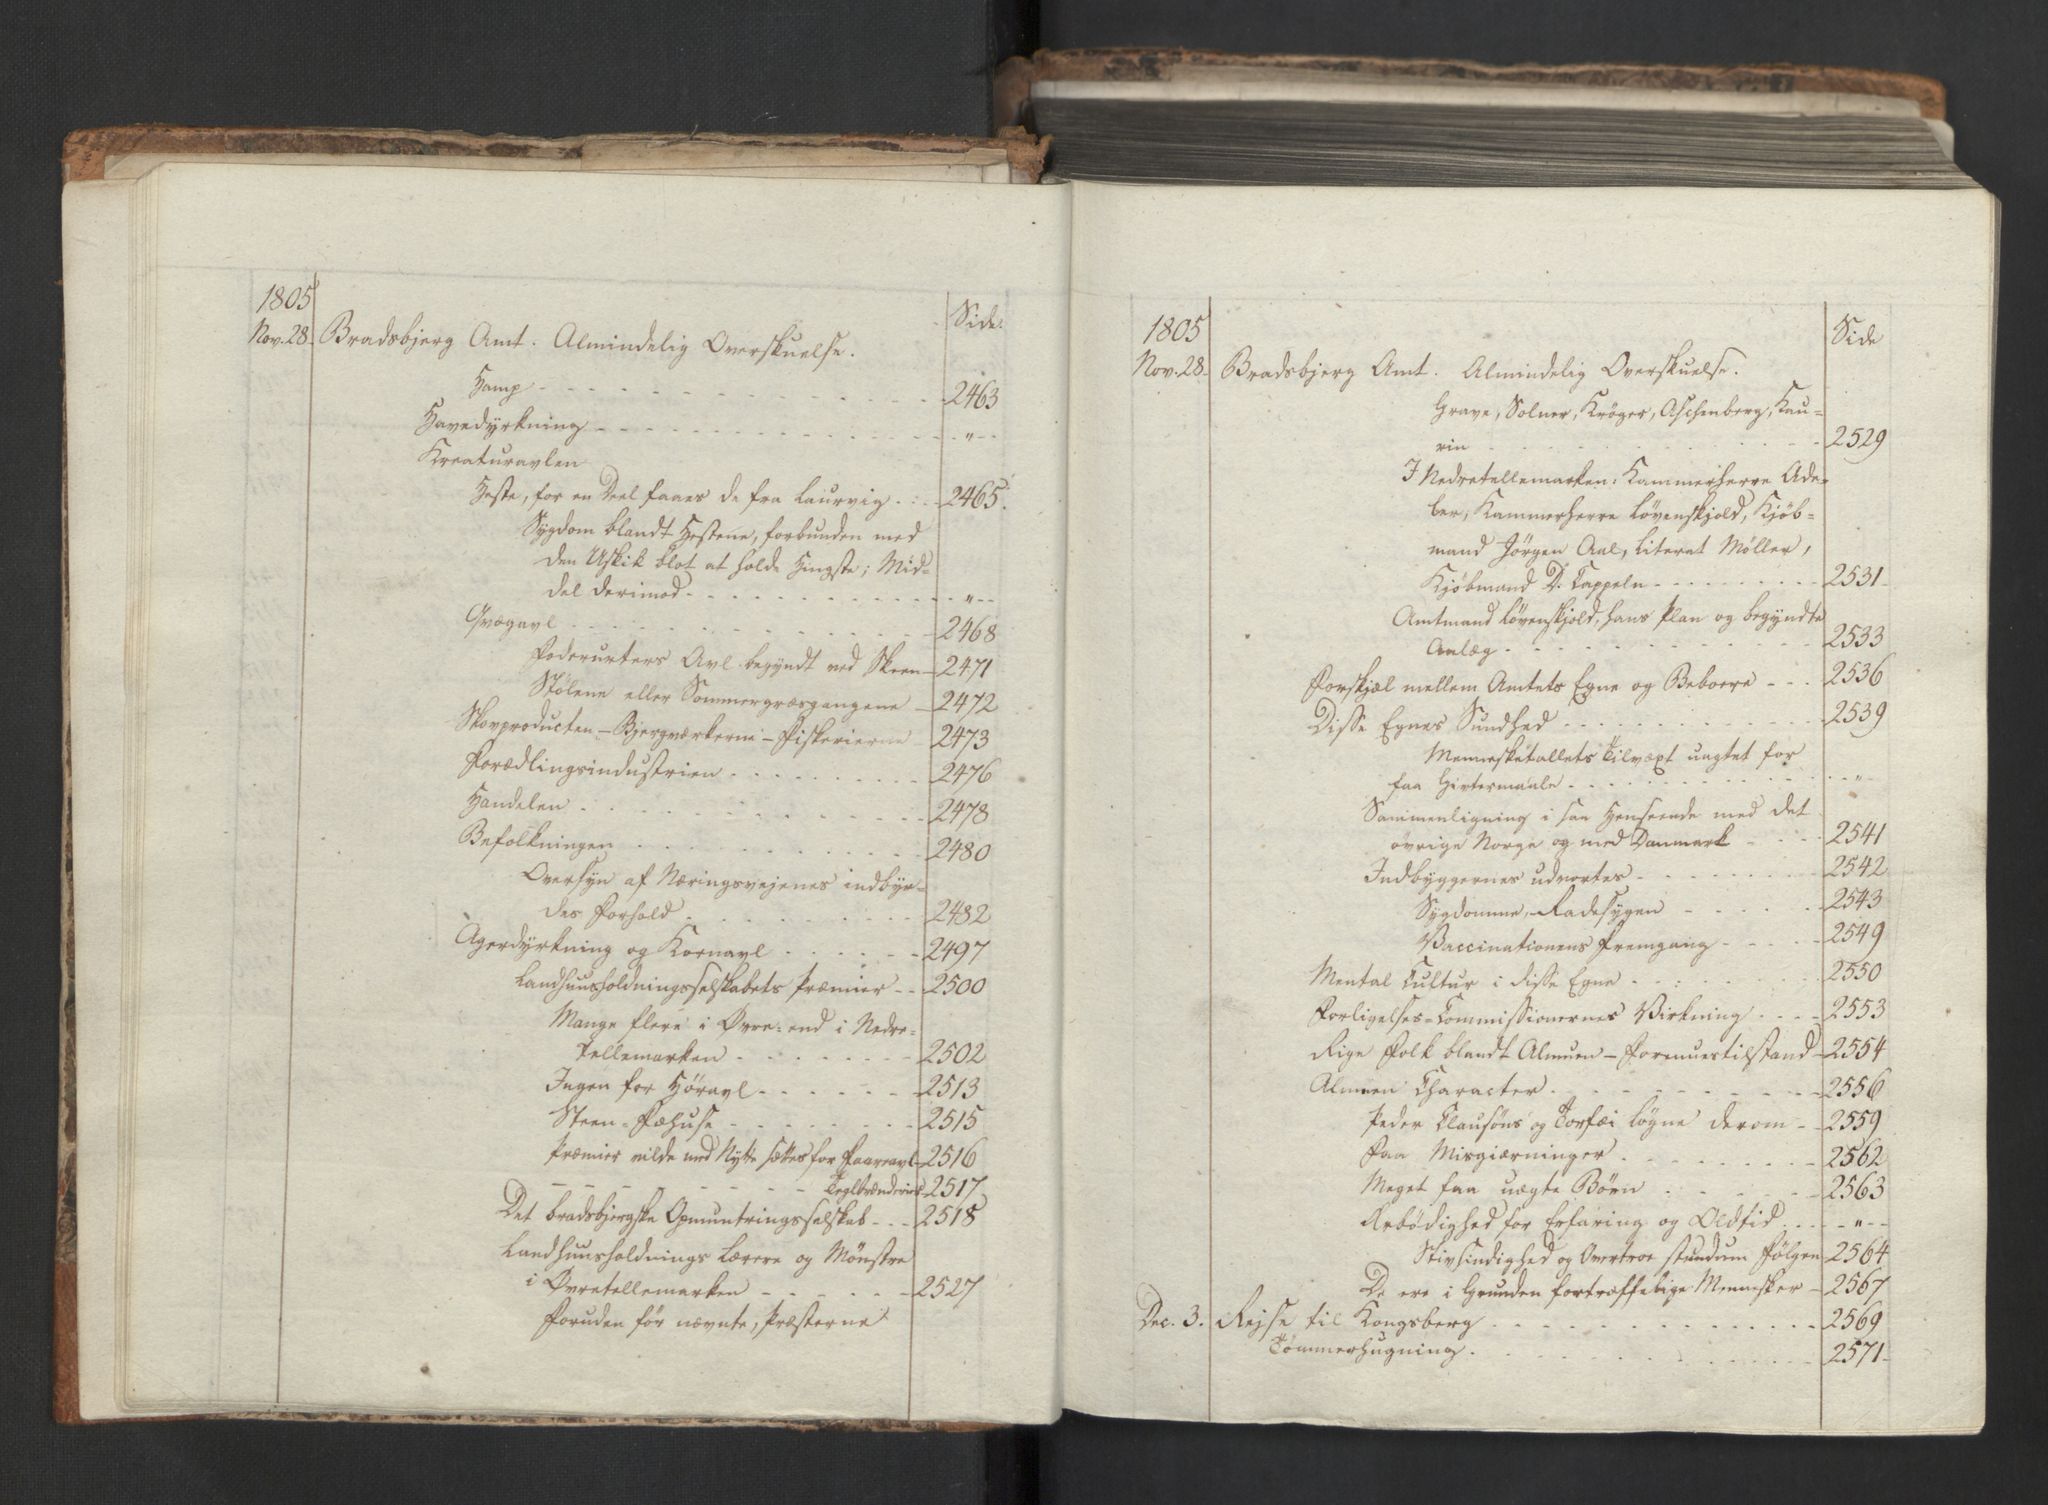 1805
Side
Nov. 28. Bradsbjerg Amt. Almindelig Overskuelse.
Hamp 2463
Havedyrkning "
Kreaturavlen
Heste, for en Deel faaes de fra Laurvig 2465.
Sygdom blandt Hestene, forbunden med
den Uskik blot at holde Hingste; Mid-
del derimod "
Qvægavl 2468
Foderurters Avl begyndt ved Skeen 2471
Stølene eller Sommergræsgangene 2472
Skovproducten - Bjergværkerne - Fiskerierne 2473
Forædlingsindustrien 2476
Handelen 2478
Befolkningen 2480
Oversyn af Næringsvejenes indbyr-
des Forhold 2482
Agerdyrkning og Kornavl 2497
Landhuusholdningsselskabets Præmier 2500
Mange flere i Øvre- end i Nedre-
tellemarken 2502
Ingen for Høravl 2513
Steen-Fæhuse 2515
Præmier vilde med Nytte sættes for Faareavl 2516
Teglbrænderier 2517
Det bradsbjergske Opmuntringsselskab 2518
Landhuusholdnings Lærere og Mønstre
i Øvretellemarken 2527
Foruden før nævnte, Præsterne
1805
Side
Nov. 28. Bradsbjerg Amt. Almindelig Overskuelse.
Grave, Solner, Krøger, Aschenberg, Kau-
rin 2529
I Nedretellemarken: Kammerherre Ade-
ler, Kammerherre Løvenskjold, Kjøb-
mand Jørgen Aal, Literat Møller,
Kjøbmand D. Cappeln 2531
Amtmand Løvenskjold, hans Plan og begyndte
Anlæg 2533
Forskjæl mellem Amtets Egne og Beboere 2536
Disse Egnes Sundhed 2539
Mennesketallets Tilvæxt uagtet for
faa Givtermaale "
Sammenligning i saa Henseende med det
øvrige Norge og med Danmark 2541
Indbyggernes udvortes 2542
Sygdomme, Radesygen 2543
Vaccinationens Fremgang 2549
Mental Cultur i disse Egne 2550
Forligelses-Commissionernes Virkning 2553
Rige Folk blandt Almuen - Formuestilstand 2554
Almuen Character 2556
Peder Clausøns og Torfæi Løgne derom 2559
Faa Misgiærninger 2562
Meget faa uægte Børn 2563
Ærbødighed for Erfaring og Oldtid "
Stivsindighed og Overtroe stundum Følgen 2564
De ere i Grunden fortræffelige Mennesker 2567
Dec. 3. Rejse til Kongsberg 2569
Tømmerhugning 2571